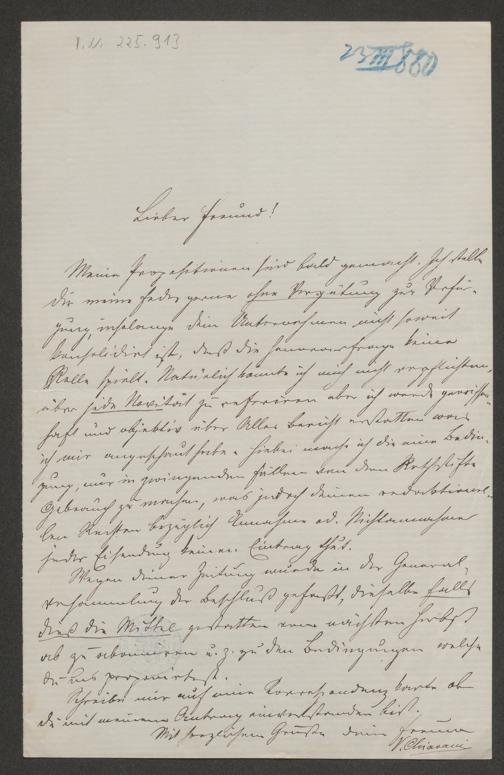 I.N. 225.913
23/III 880
Lieber Freund!
Meine Propositionen sind bald gemacht. Ich stelle
Dir meine Feder gerne ohne Vergütung zur Verfü-
gung, insolange dein Unternehmen nicht soweit
konsolidirt ist, daß die Honorarfrage keine
Rolle spielt. Natürlich könnte ich mich nicht verpflichten,
über jede Novität zu referiren aber ich werde gewissen-
haft und objektiv über Alles Bericht erstatten was
ich mir angeschaut habe. Hiebei mache ich die eine Bedin-
gung, nur in zwingenden Fällen von dem Rothstifte
Gebrauch zu machen, was jedoch deinen redaktionel-
len Rechten bezüglich Annahme od. Nichtannahme
jeder Einsendung keinen Eintrag thut.
Wegen deiner Zeitung wurde in der General-
versammlung der Beschluß gefasst, dieselbe falls
dies die Mittel gestatten vom nächsten Herbst
ab zu abonniren u. z. zu den Bedingungen welche
du uns proponirtest.
Schreibe mir auf einer Correspondenzkarte ob
du mit meinem Antrag einverstanden bist.
Mit herzlichem Gruße dein Freund
V. Chiavacci